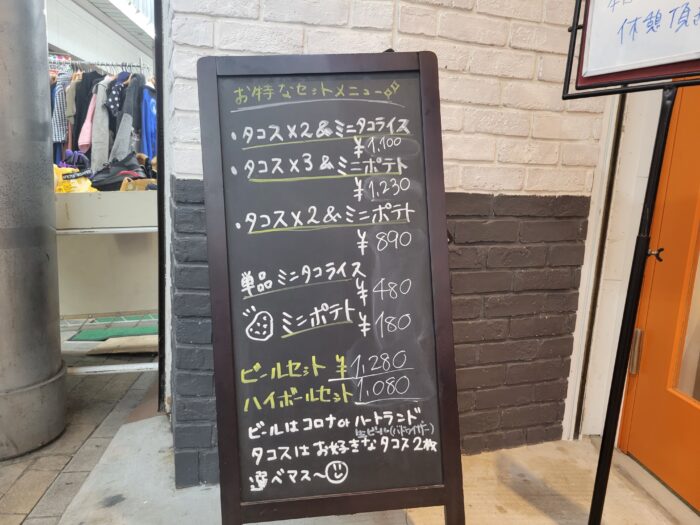 お得なセットメニュー
・タコス×2&ミニタコライス
¥1,100
・タコス×3&ミニポテト
¥1,230
・タコス×2&ミニポテト
¥890
単品ミニタコライス
¥480
ミニポテト ¥180
ビールセット ¥1,280
ハイボールセット 1,080
ビールはコロナorハートランド
生ビール(バドワイザー)
タコスはお好きなタコス2枚
選べマス〜
休憩頂き